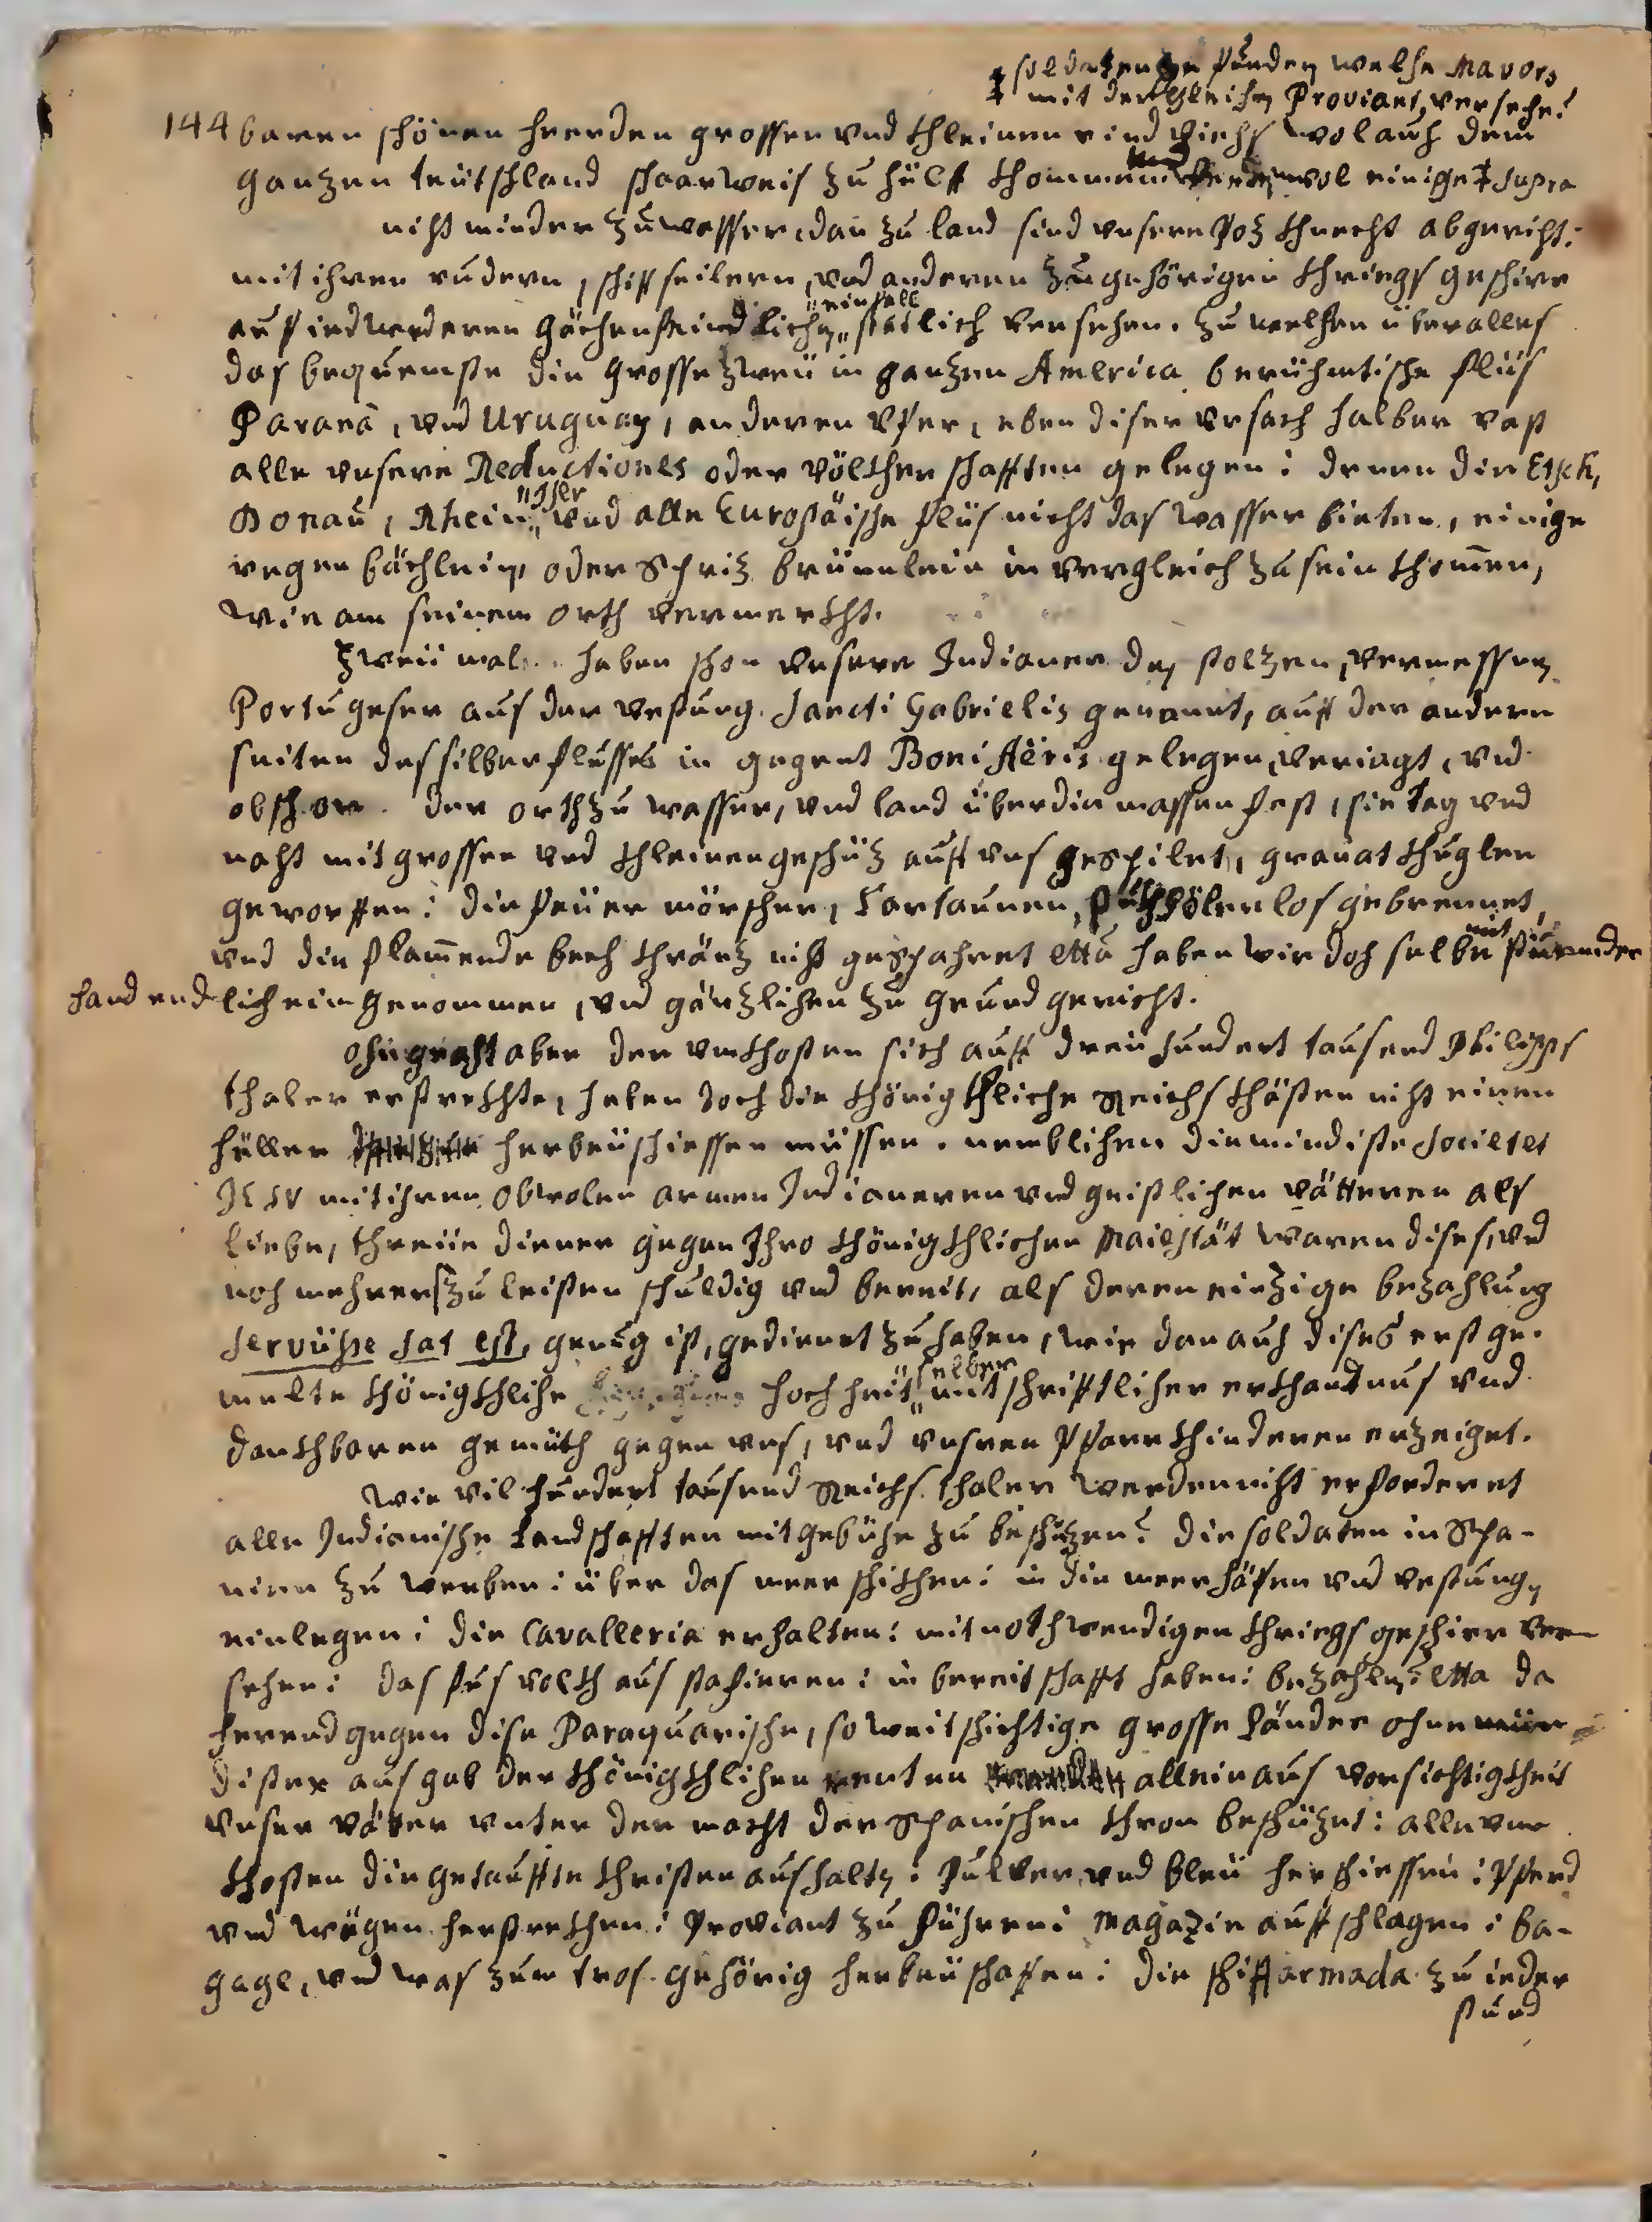 ‡ soldaten zu finden welche Mavors
mit dergleichen Proviant, versehe?
144 baren schönen heerden grossen vnd khleinen rind viechs wol auch dem
gantzen teütschland schaarweis zu hülff khommen vnd wol einige ‡ supra
nicht minder zu wasser, dan zu land sind vnsere Joz khnecht abgericht:
mit ihren rudern, schiffseilern, vnd anderen zugehörigen khriegs geschirr
auf iedwederen gächen feindlichen „einfall„ statlich versehen. zu welchen über alles
das bequemste die grosse zweü in gantzen America berühmtische flüs
Paranà, vnd Uruguay, an deren Vfer, eben diser vrsach halber vast
alle vnsere Reductiones oder völkherschafften gelegen: denen die Etsch,
Donau, Rhein, „Iser„ vnd alle Europäische flüs nicht das wasser bieten, einige
regen bächlein, oder Spriz brünnlein in vergleich zu sein khom̄en,
wie am seinem orth vermerkht.
Zweü mal haben schon vnsere Indianer den stolzen, vermessen
Portugeser aus der vestung Sancti Gabrielis genannt, auff der andern
seiten des silberflusses in gegent Boni Aëris gelegen, veriagt, vnd
obschon der orth zu wasser, vnd land über die massen fest, sie tag vnd
nacht mit grossen vnd khleinen geschüz auff vns gespilet, granat khuglen
geworffen: die feüer mörscher, Cartaunen, los gebrennet,
vnd die flam̄ende bech khränz nicht gespahret etta haben wir doch selbe mit stürmender
hand endlich eingenommen, vnd gänzlichen zu grund gericht.
Ohngeacht aber der vnkhosten sich auff dreü hundert tausend Philipps
thaler erstrekhte, haben doch die khönigkhliche Reichs khästen nicht einen
häller herbeüschiessen müssen. nemblichen die mindiste Societet
IESV mit ihren obwolen armen Indianeren vnd geistlichen vätteren als
liebe, threüe diener gegen Ihro khönigkhlichen Maiestät waren dises, vnd
noch mehrers zu leisten schuldig vnd bereit, als deren einzige bezahlung
servüsse sat est, genug ist, gedienet zu haben, wie dan auch dises erst ge-
melte khönigkhliche hochheit „selber„ mit schrifftlicher erkhantnus vnd
dankhbaren gemüth gegen vns, vnd vnsren Pfarrkhinderen erzeiget.
Wie vil hundert tausend Reichs thaler werden nicht erforderet
alle Indianische landschafften mit gebühr zu beschüzen? die soldaten in Spa-
nien zu werben: über das meer schikhen: in die meerhäfen vnd vestungen
einlegen: die Cavalleria erhalten: mit nothwendigen khriegs geschirr ver-
sehen: das fus volkh aus stafieren: in bereitschafft haben: bezahlen? etta da
herend gegen dise Paraquarische, so weitschichtige grosse länder ohne min-
dister ausgab der khönigkhlichen renten allein aus vorsichtigkheit
vnser väter vnter der macht der Spanischen khron beschüzet: alle vn-
khosten die getauffte Christen aushalten: Pulver, vnd bleü hergiessen: Pferd
vnd wägen herstrekhen: Proviant zu führen: Magazin auffschlagen: ba-
gage, vnd was zum tros gehörig herbeüschafen: die schiffarmada zu ieder
stund